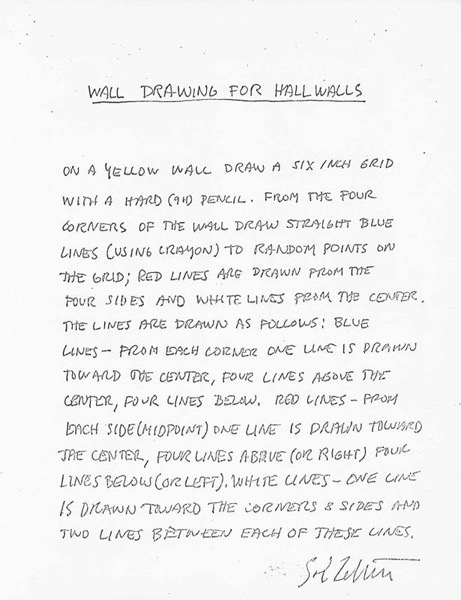 WALL DRAWING FOR HALLWALLS
ON A YELLOW WALL DRAW A SIX INCH GRID
WITH A HARD (9H) PENCIL. FROM THE FOUR
CORNERS OF THE WALL DRAW STRAIGHT BLUE
LINES (USING CRAYON) TO RANDOM POINTS ON
THE GRID; RED LINES ARE DRAWN FROM THE
FOUR SIDES AND WHITE LINES FROM THE CENTER.
THE LINES ARE DRAWN AS FOLLOWS: BLUE
LINES – FROM EACH CORNER ONE LINE IS DRAWN
TOWARD THE CENTER, FOUR LINES ABOVE THE
CENTER, FOUR LINES BELOW. RED LINES – FROM
EACH SIDE (MIDPOINT) ONE LINE IS DRAWN TOWARD
THE CENTER, FOUR LINES ABOVE (OR RIGHT) FOUR
LINES BELOW (OR LEFT). WHITE LINES – ONE LINE
IS DRAWN TOWARD THE CORNERS & SIDES AND
TWO LINES BETWEEN EACH OF THESE LINES.
Sol LeWitt